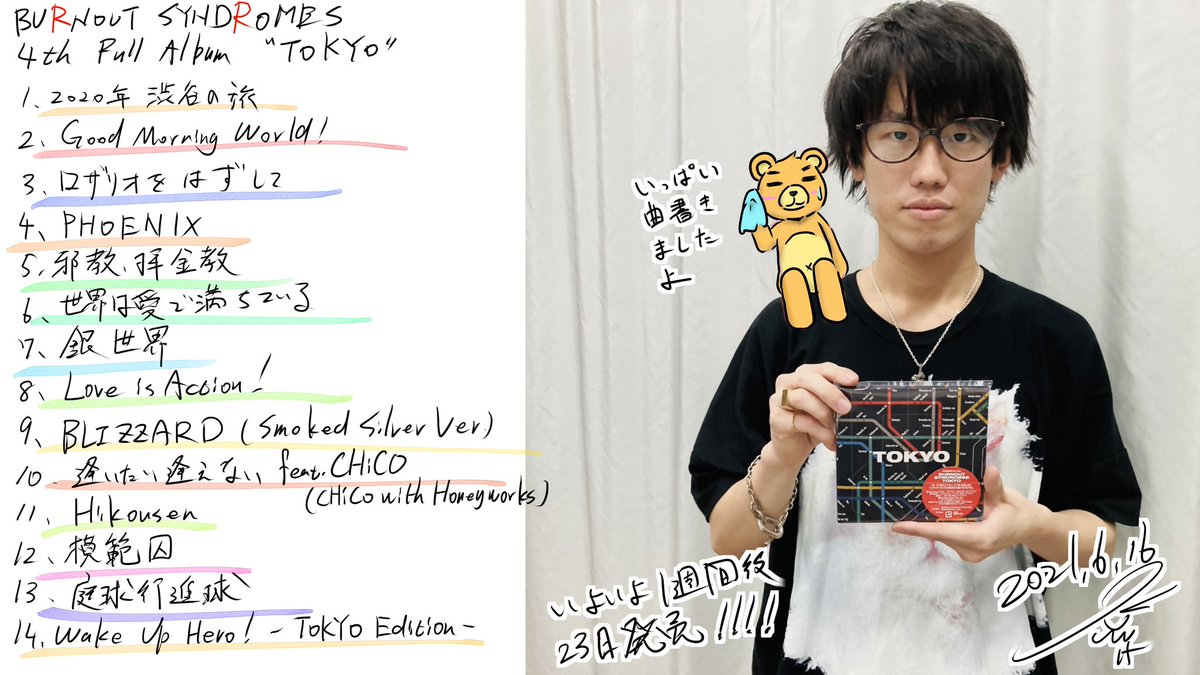 BURNOUT SYNDROMES
4th Full Album "TOKYO"
1、2020年 渋谷の旅
2、Good Morning World!
3、ロザリオをはずして
4、PHOENIX
5、邪教、拝金教
6、世界は愛で満ちている
7、銀世界
8、Love is Action!
9、BLIZZARD (Smoked Silver Ver)
10、逢いたい逢えない feat. CHiCO
(CHiCO with Honeyworks)
11、Hikousen
12、模範囚
13、庭球行進曲
14、Wake Up Hero! -TOKYO Edition-
いっぱい
曲書き
ました
よ
TOKYO
BURNOUT
SYNDROMES
TOKYO
いよいよ1週間後
23日発売!!!!
2021,6,16